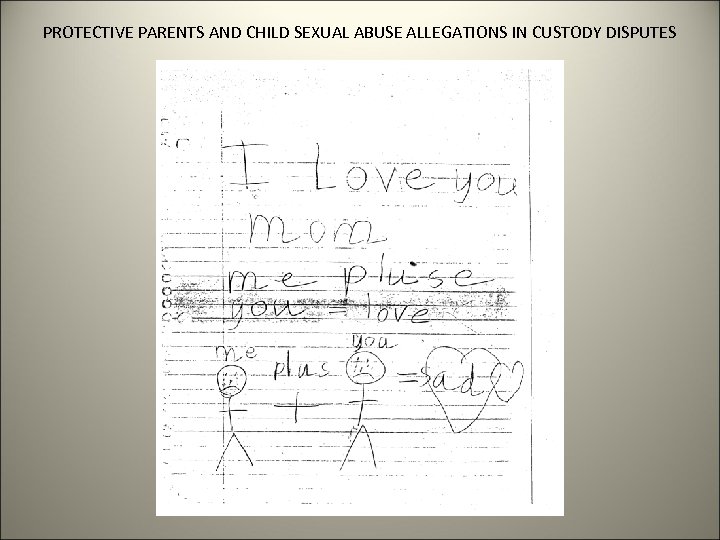 PROTECTIVE PARENTS AND CHILD SEXUAL ABUSE ALLEGATIONS IN CUSTODY DISPUTES
I Love you
mom
me pluse
you = love
me plus you = sad
+